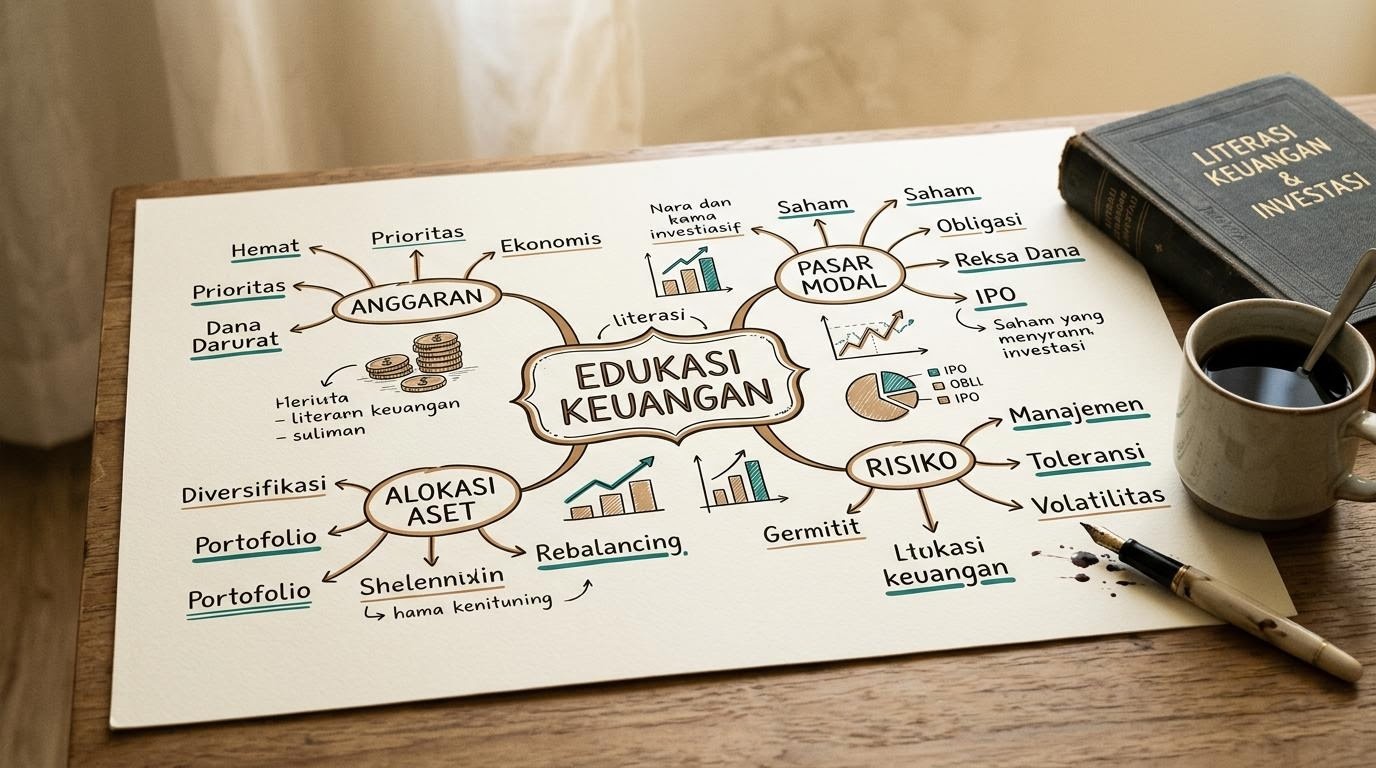 Hemat
Prioritas
Ekonomis
Prioritas
Dana
Darurat
ANGGARAN
Heriuta
- literarn keuangan
- suliman
literasi
EDUKASI
KEUANGAN
Nara dan
kama
investiasif
Saham
Saham
Obligasi
Reksa Dana
IPO
Saham yang
menyrann.
investasi
PASAR
MODAL
IPO
OBLL
IPO
Diversifikasi
Portofolio
Portofolio
ALOKASI
ASET
Rebalancing.
hama kenituning
RISIKO
Manajemen
Toleransi
Volatilitas
Germitit
Ltukasi
keuangan
LITERASI
KEUANGAN
&
INVESTASI